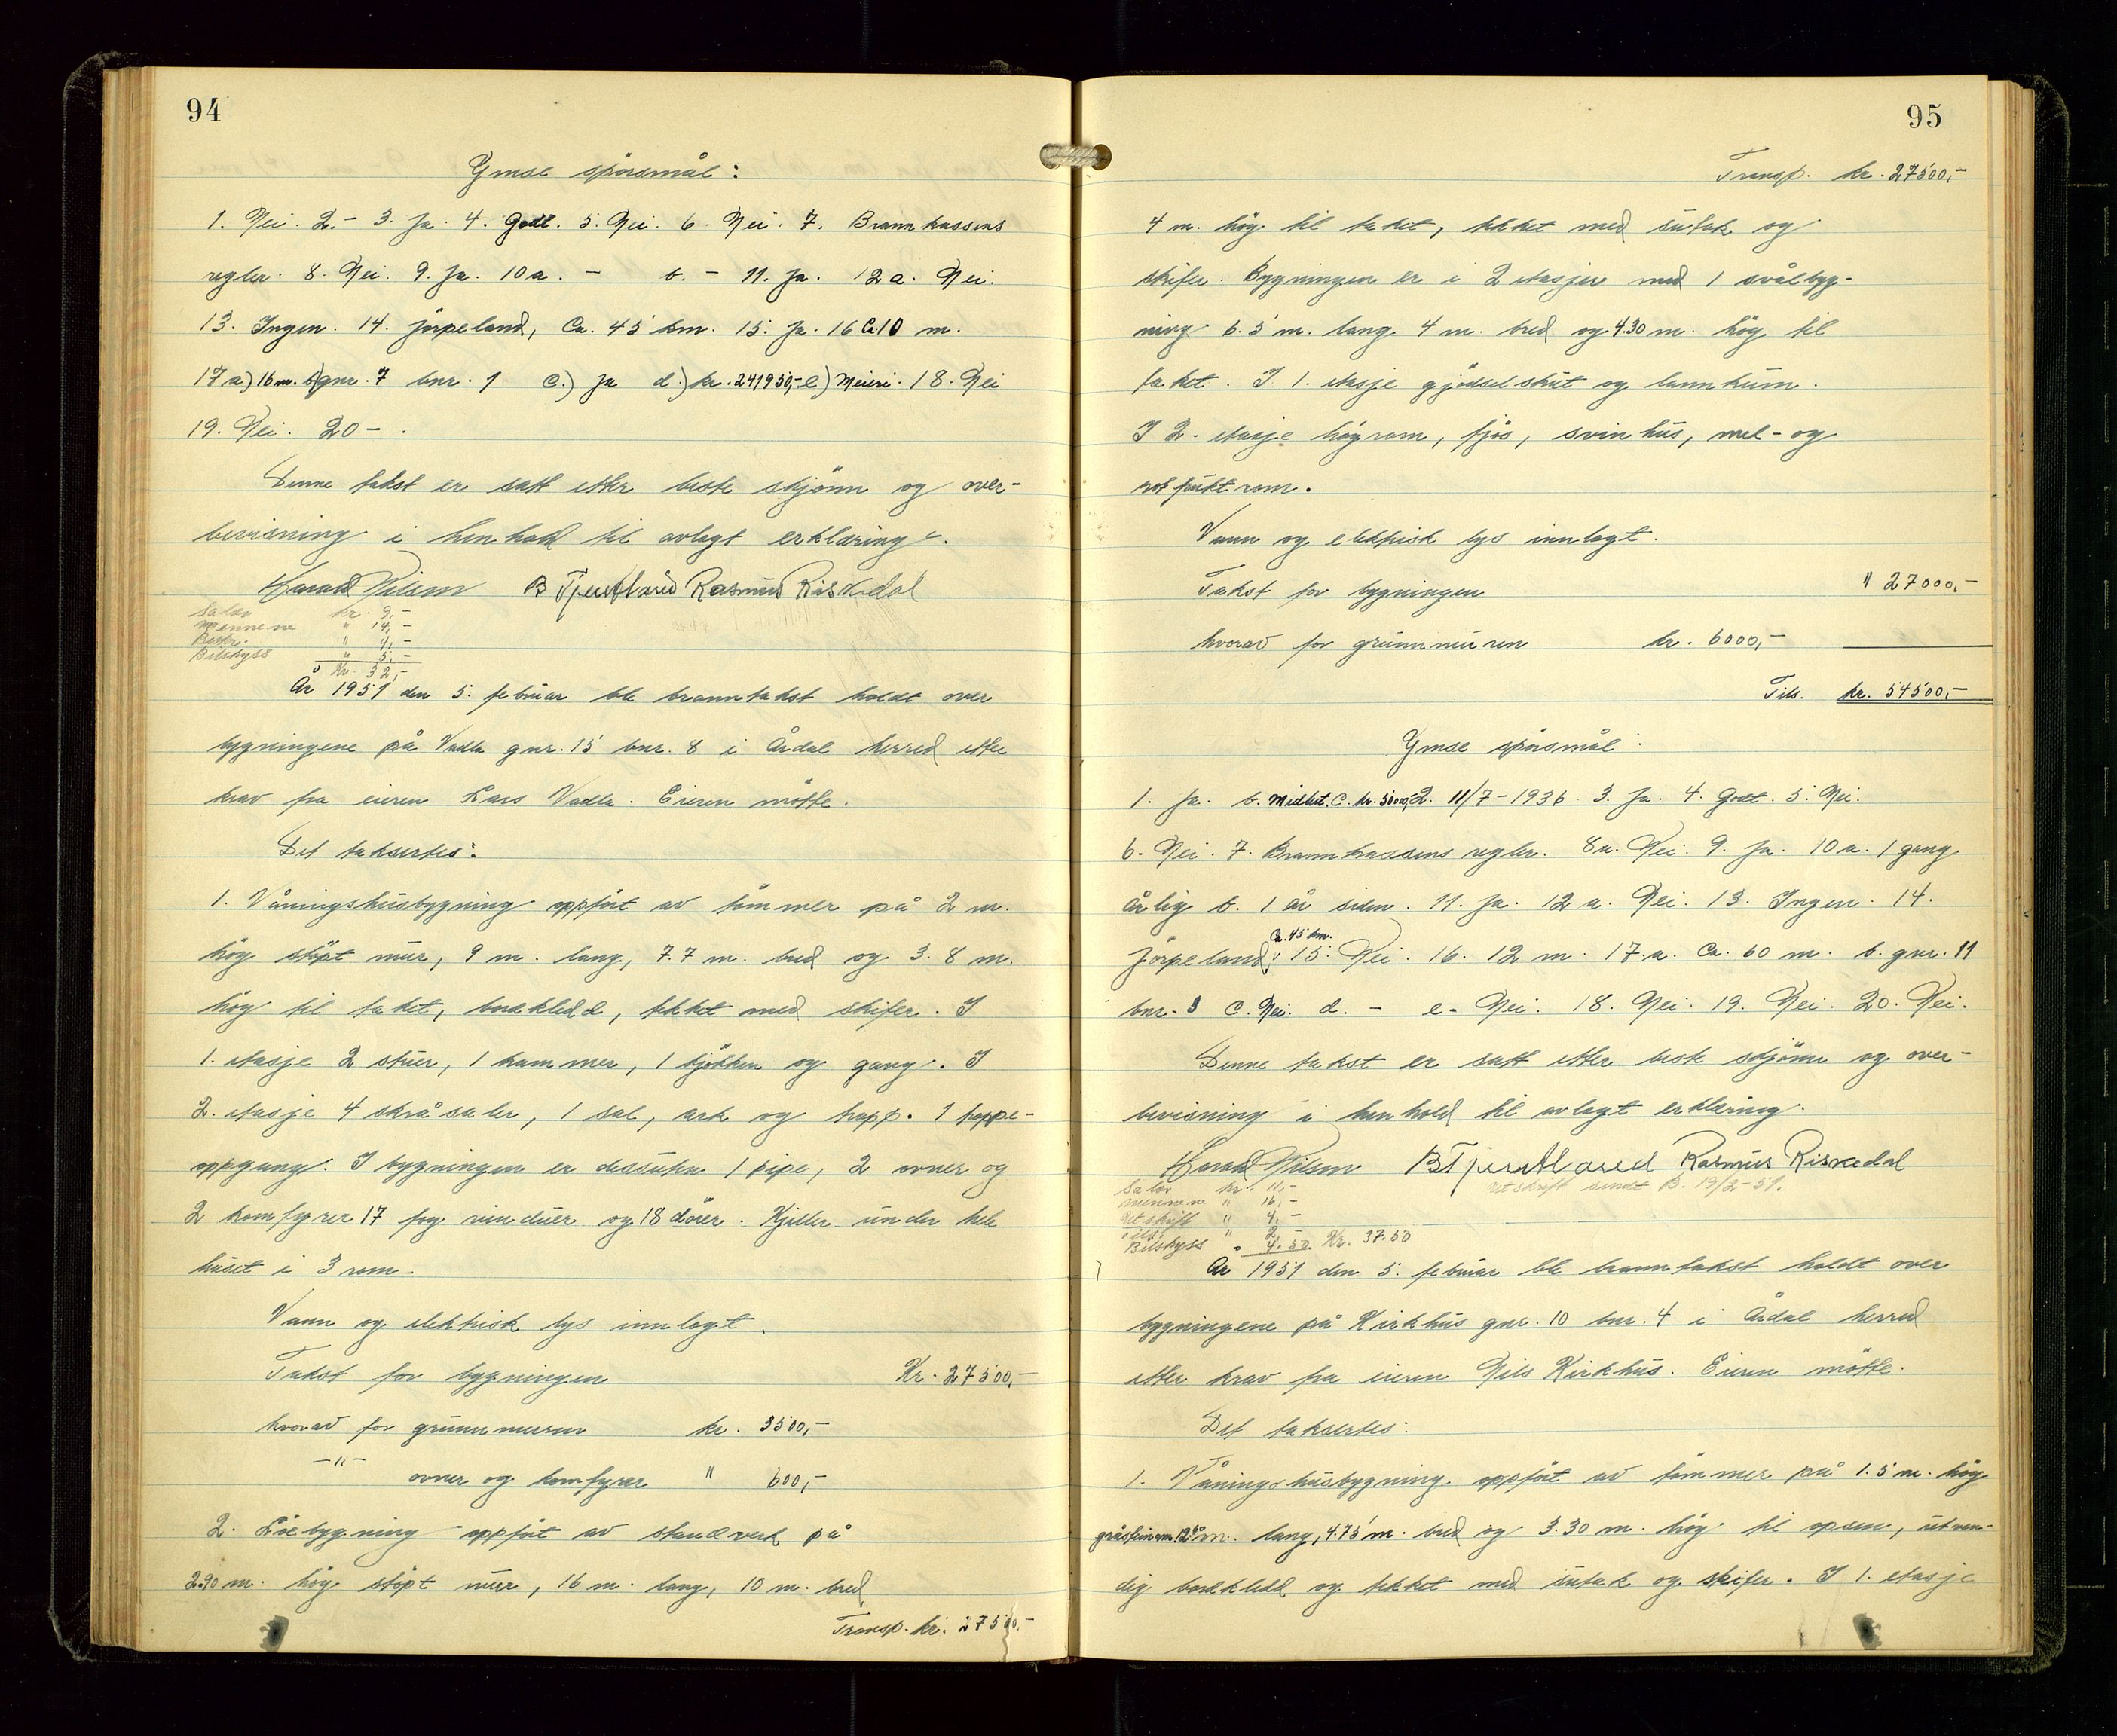 94
Ymse spörsmål:
1. Nei. 2. - 3. Ja. 4. Godt. 5. Nei. 6. Nei. 7. Brannkassens
regler. 8. Nei. 9. Ja. 10a. - b. - 11. Ja. 12a. Nei.
13. Ingen. 14. Jörpeland, Ca. 45 km. 15. Ja. 16 Ca 10 m.
17 a) 16 m. b) gnr. 7 bnr. 1 c.) Ja d.) kr. 241950,- e) Meieri. 18. Nei
19. Nei. 20 - .
Denne takst er satt etter beste skjönn og over-
bevisning i henhold til avlagt erklæring.
Harald Nilsen B Tjentland Rasmus Riskedal
Salær kr. 9,-
Mennene " 14,-
Beskr. " 4,-
Bilskyss " 5,-
Kr. 32,-
År 1951 den 5. februar ble branntakst holdt over
bygningene på Vadla gnr. 15 bnr. 8 i Årdal herred etter
krav fra eieren Lars Vadla. Eieren mötte.
Det taksertes:
1. Våningshusbygning oppfört av tömmer på 2 m.
hög stöpt mur, 9 m. lang, 7.7 m. bred og 3.8 m.
hög til taket, bordkledd, tekket med skifer. I
1. etasje 2 stuer, 1 kammer, 1 kjökken og gang. I
2. etasje 4 skråsaler, 1 sal, ark og trapp. 1 trappe-
oppgang. I bygningen er dessuten 1 pipe, 2 ovner og
2 komfyrer 17 fag vinduer og 18 dörer. Kjeller under hele
huset i 3 rom.
Vann og elektrisk lys innlagt.
Takst for bygningen Kr. 27500,-
hvorav for grunnmuren kr. 3500,-
-"- ovner og komfyrer " 600,-
2. Löebygning oppfört av standverk på
2.90 m. hög stöpt mur, 16 m. lang, 10 m. bred
Transp. kr. 27500,-
95
Transp. kr. 27500,-
4 m. hög til taket, tekket med sutak og
skifer. Bygningen er i 2 etasjer med 1 svålbyg-
ning 6.5 m. lang 4 m. bred og 4.30 m. hög til
taket. I 1. etasje gjödselskut og lannkum.
I 2. etasje höyrom, fjös, svinhus, mel- og
rotfruktrom.
Vann og elektrisk lys innlagt.
Takst for bygningen " 27000,-
hvorav for grunnmuren kr. 6000,-
Tils. kr. 54500,-
Ymse spörsmål:
1. Ja. b. Midhit. C. kr. 5000,- 2. 11/7-1936. 3. Ja. 4. Godt. 5. Nei.
6. Nei. 7. Brannkassens regler. 8a. Nei. 9. Ja. 10a. 1 gang
årlig b. 1 år siden. 11. Ja. 12 a. Nei. 13. Ingen. 14.
Ca. 45 km.
Jörpeland. 15. Nei. 16. 12 m. 17.a. Ca. 60 m. b. gnr. 11
bnr. 3 C. Nei. d. - e. Nei. 18. Nei. 19. Nei. 20. Nei.
Denne takst er satt etter beste skjönn og over-
bevisning i henhold til avlagt erklæring.
Harald Nilsen B Tjentland Rasmus Riskedal
Salær kr. 11,-
Utskrift sendt B. 19/2-51.
Mennene " 16,-
Utskrift " 4,-
" 2,-
Bilskyss " 4.50 Kr. 37.50
År 1951 den 5. februar ble branntakst holdt over
bygningene på Kirkhus gnr. 10 bnr. 4 i Årdal herred
etter krav fra eieren Nils Kirkhus. Eieren mötte.
Det taksertes:
1. Våningshusbygning oppfört av tömmer på 1.5 m. hög
gråsteinsm. 12.50 m. lang, 4.75 m. bred og 3.30 m. hög til opsen, utven-
dig bordkledd og tekket med sutak og skifer. I 1. etasje